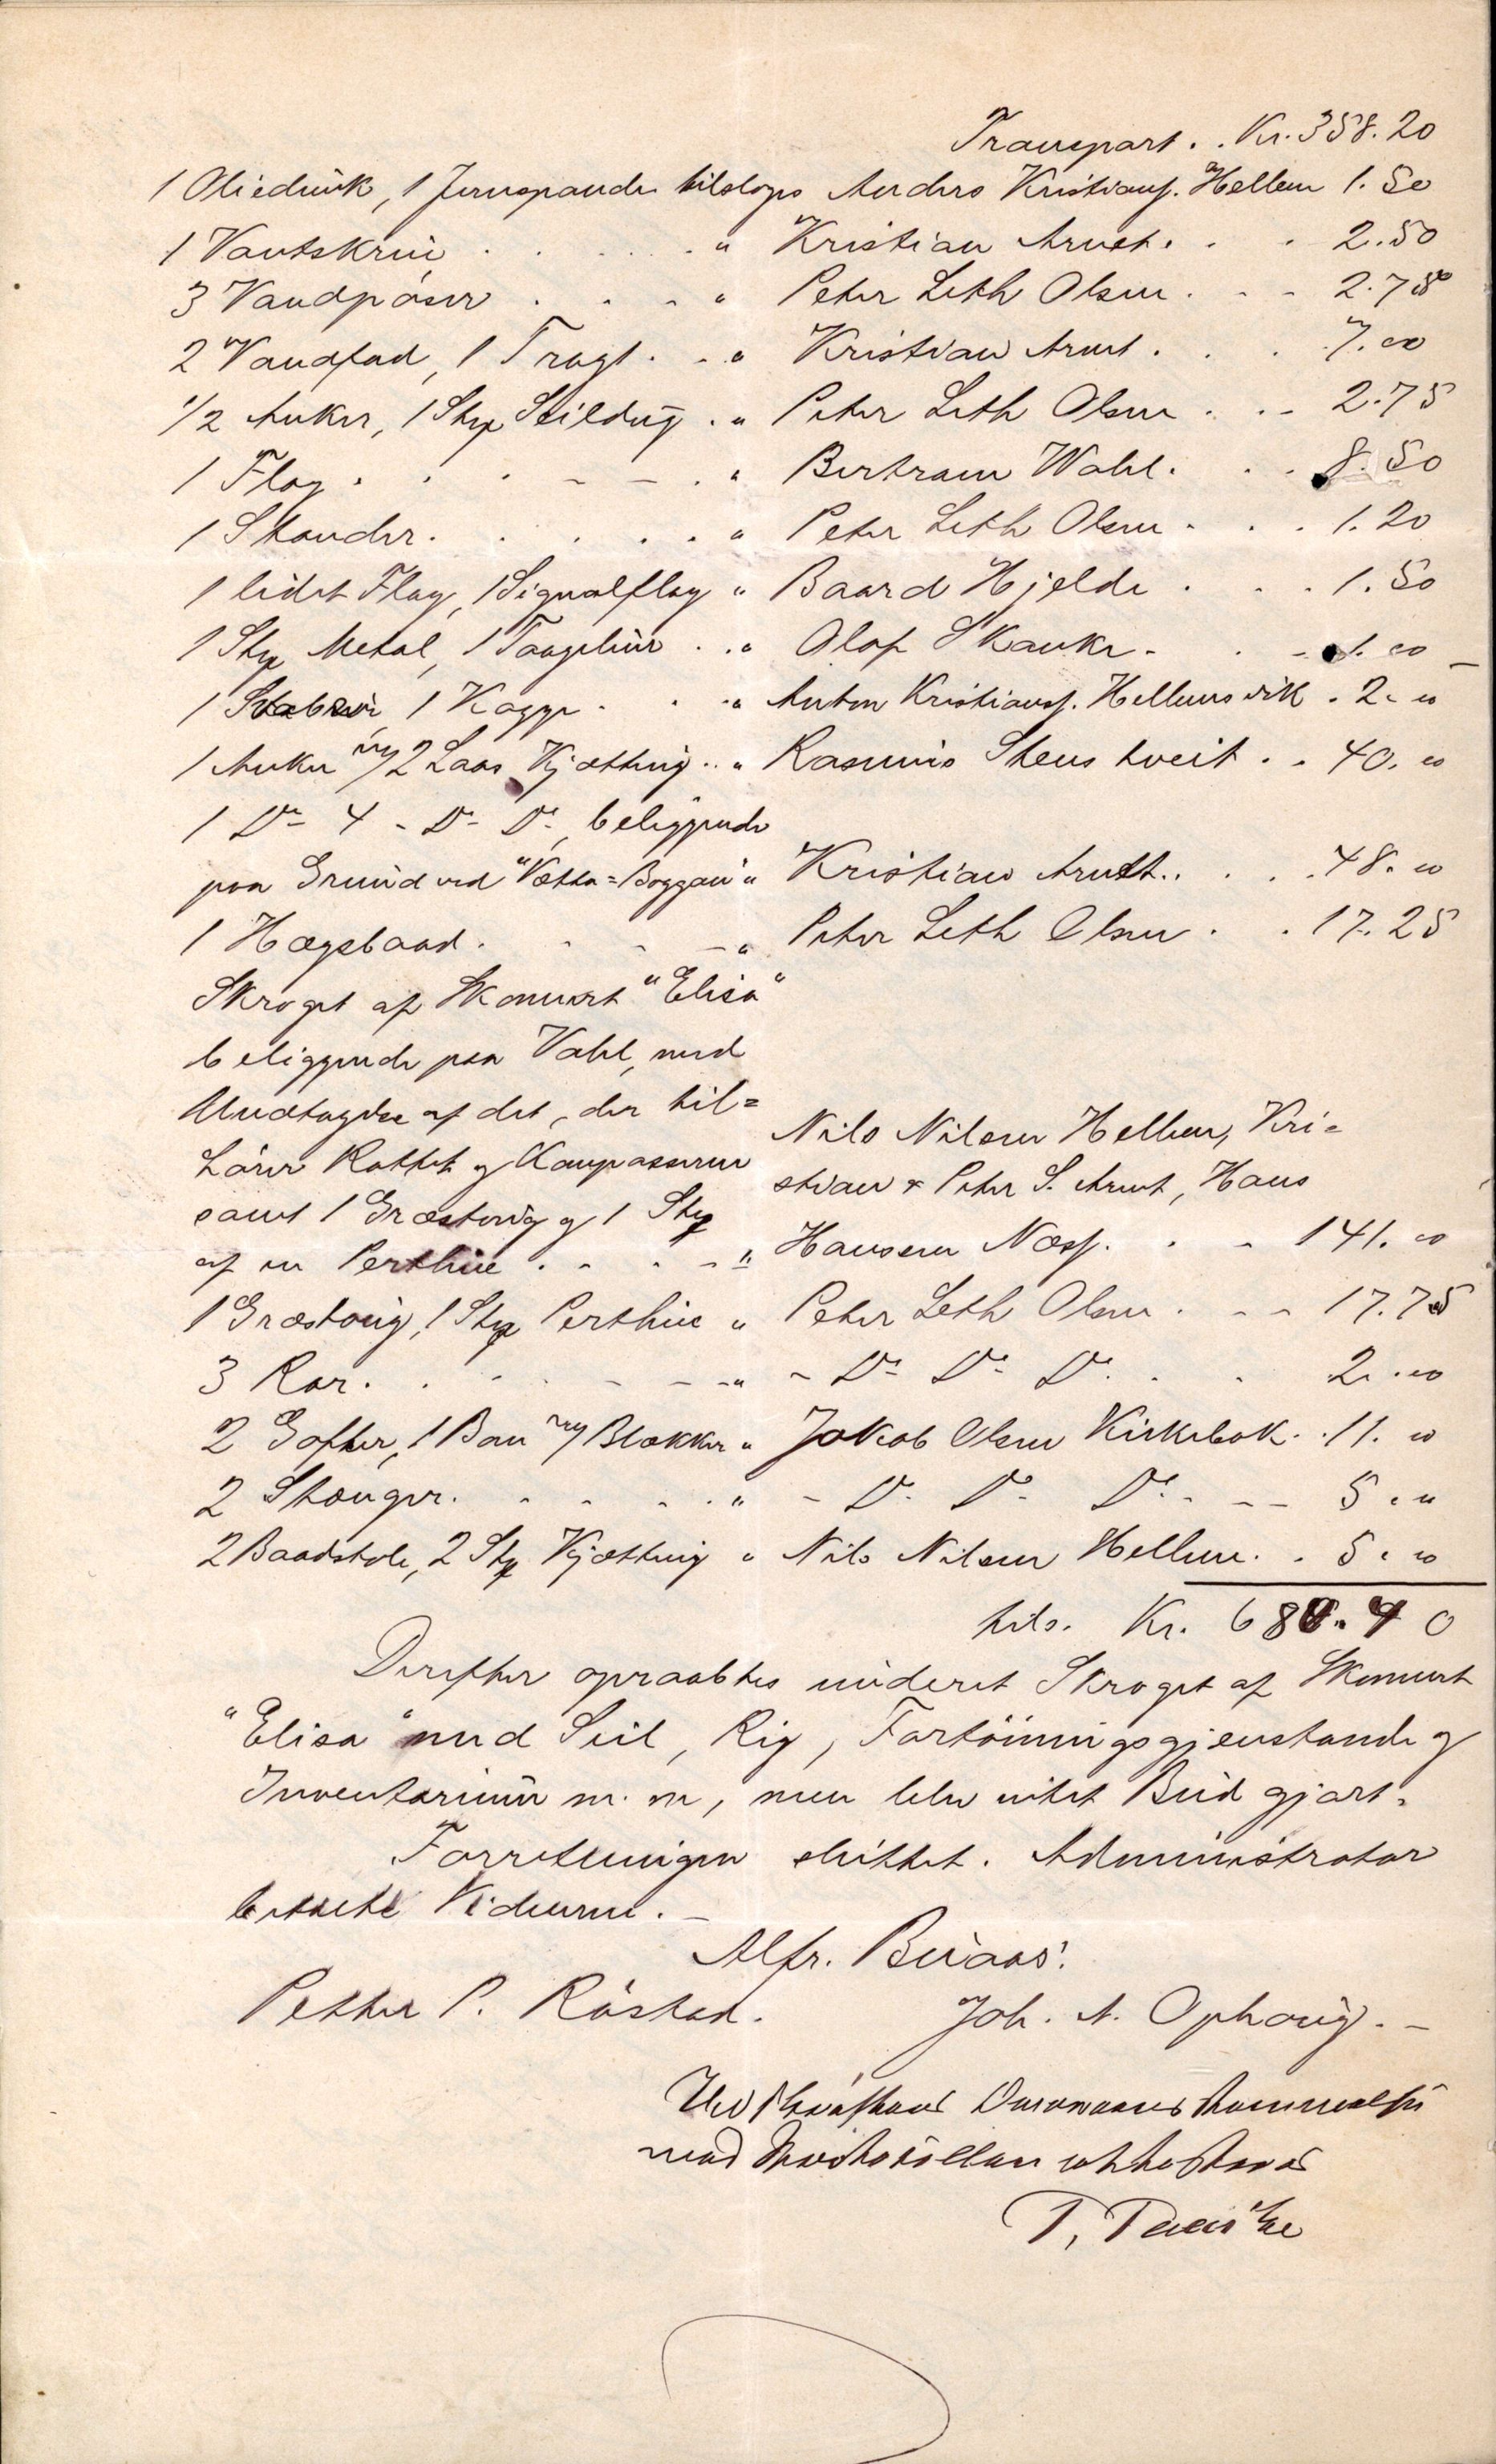 Transport . . Kr. 358.20
1 Oliedunk, 1 Jernspande tilsloges Anders Kristians. Hellem 1.50
1 Vantskrue . . . . . " Kristian Arnet . . . 2.50
3 Vandpöser . . . . " Peter Leth Olsen . . . 2.75
2 Vandfad, 1 Tragt . . . " Kristian Arnet . . . 7.00
1/2 Anker, 1 Stk Seildug . " Peter Leth Olsen . . . 2.75
1 Flag . . . . . . " Bertram Wahl . . . 8.50
1 Stander . . . . . . " Peter Leth Olsen . . . 1.20
1 lidet Flag, 1 Signalflag " Baard Hjelde . . . 1.50
1 Stk Metal, 1 Taagelur . . " Olof Skauke . . . 1.00
1 1 Kagge . . . " Anton Kristians. Hellemsvik . 2.00
1 Anker m/ 2 Laas Kjætting . . " Rasmus Stenstveit . . 40.00
1 Do 4 - Do Do, beliggende
paa Grund ved "Vetta=Boggan" " Kristian Arnet . . . 48.00
1 Hægsbaad . . . . " Peter Leth Olsen . . 17.25
Skroget af Skonnert "Elisa"
beliggende paa Vahl, med
Undtagelse af det, der til=
hörer Rattet og Kompasserne
samt 1 Græstoug og 1 Stk
af en Pertline . . . . " Nils Nilsen Hellem, Kri=
stian & Peter S. Arnet, Hans
Hansen Næss. . . 141.00
1 Græstoug, 1 Stk Pertline " Peter Leth Olsen . . . 17.75
3 Rær . . . . . . . " - Do Do Do . . 2.00
2 Gafler, 1 Bom m/ Blokker " Jakob Olsen Kirkebak . . 11.00
2 Stænger . . . . . " - Do Do Do . . . 5.00
2 Baadstole, 2 Stk Kjætting " Nils Nilsen Hellem . . 5.00
tils. Kr. 680.40
Derefter opraabtes underet Skroget af Skonnert
"Elisa" med Seil, Rig, Fortöiningsgjenstande og
Inventarium m. m, men blev intet Bud gjort.
Forretningen sluttet. Administrator
betalte Vidnerne. -
Alfr. Buaas.
Petter P. Röstad. Joh. A. Ophaug. -
med Protokollen attesteres